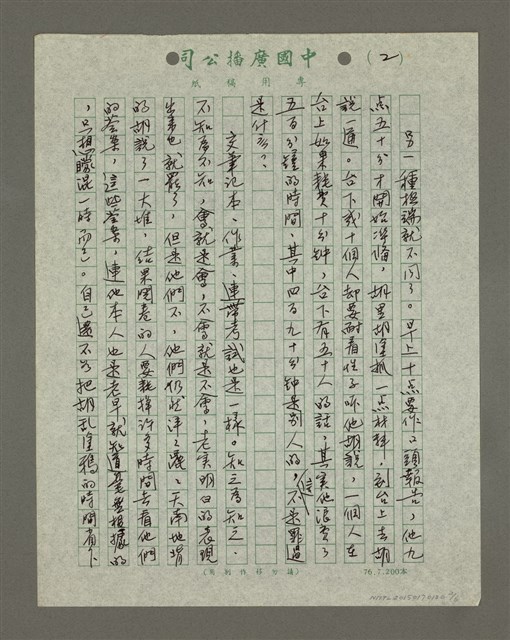 (2)
中國廣播公司
專用稿紙
另一種極端就不同了。早上十点要作口頭報告，他九
点五十分才開始準備，胡里胡塗抓一点材料，到台上去胡
說一通。台下或十個人却要耐着性子听他胡說，一個人在
台上如果耗費十分钟，台下有五十人的話，其实他浪費了
五百分鐘的時間，其中四百九十分钟是別人的，不是罪過
是什么？
文筆記本、作業、連帶考試也是一樣。知之為知之，
不知為不知，會就是會，不會就是不會，老实明白的表現
出來也就罷了，但是他們不，他們仍然洋洋灑灑，天南地北
的胡說了一大堆，結果閱卷的人要耗掉許多時間去看他們
的答案，這些答案，連他本人也是老早就知道毫無根據的
，只想矇混一時而已。自己還不如把胡乱塗鴉的時間省下
76.7.200本